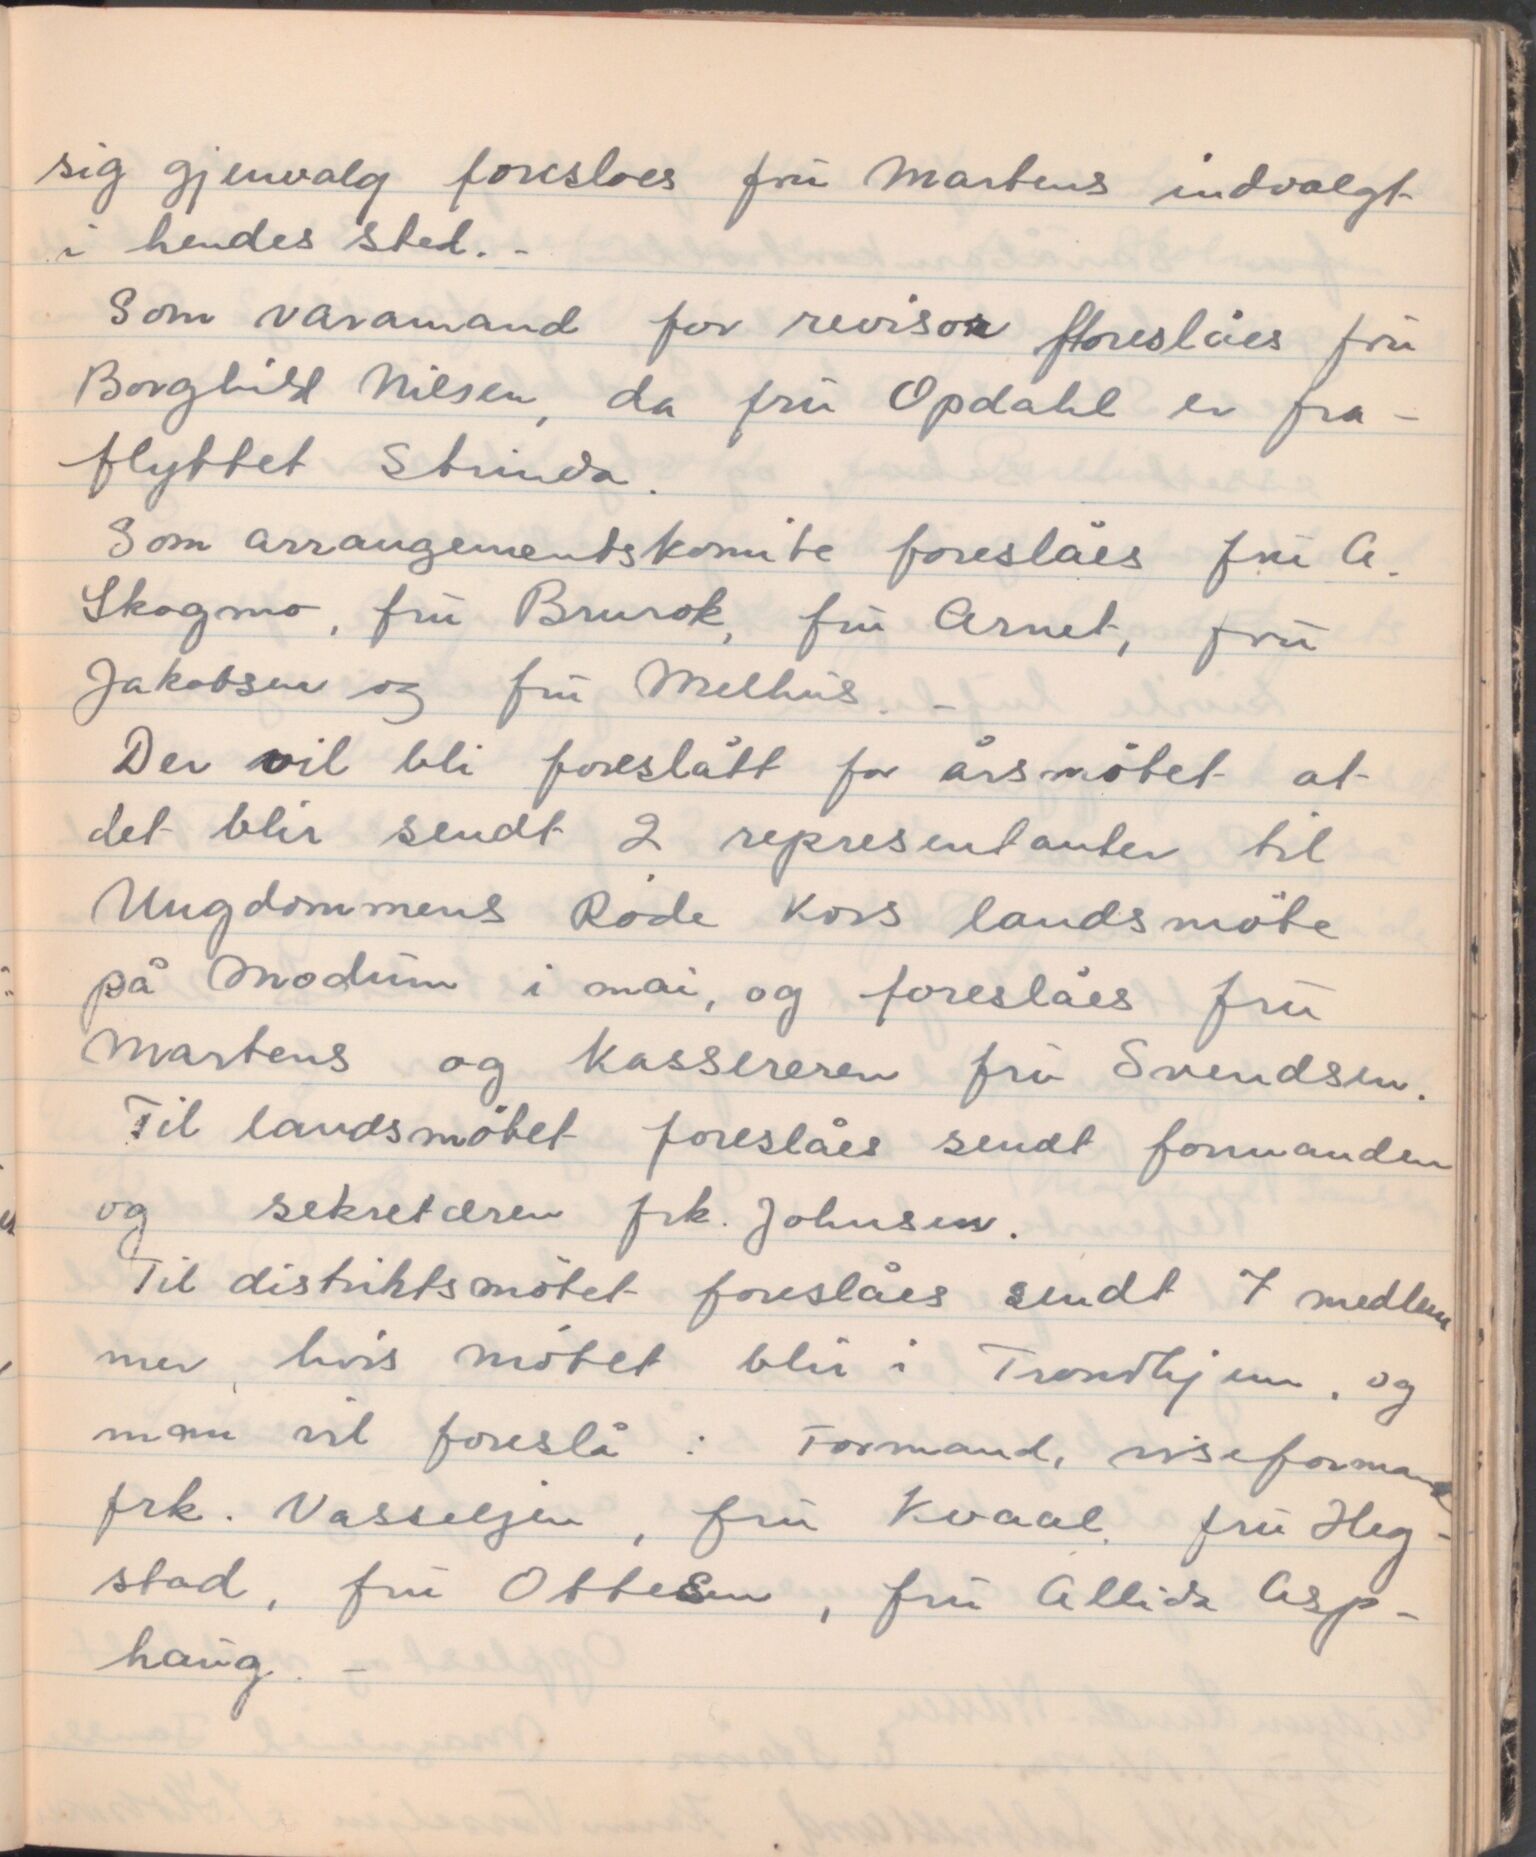 sig gjenvalg foresloes frü Martens indvalgt
i hendes sted. -
Som varamand for revisor foreslåes frü
Borghild Nilsen, da frü Opdahl er fra-
flyttet Strinda.
Som arrangementskomite foreslåes frü A.
Skogmo, frü Brurok, frü Arnet, frü
Jakobsen og frü Melhüs. -
Der vil bli foreslått for årsmötet at
det blir sendt 2 representanter til
Ungdommens Röde Kors landsmöte
på Modüm i mai, og foreslåes frü
Martens og kassereren frü Svendsen.
Til landsmötet foreslåes sendt formanden
og sekretæren frk. Johnsen.
Til distriktsmötet foreslåes sendt 7 medlem
mer, hvis mötet blir i Trondhjem, og
man vil foreslå : Formand, viseformand
frk. Vasseljen, frü Kvaal, frü Heg-
stad, frü Ottesen, frü Allida Asp-
haüg. -